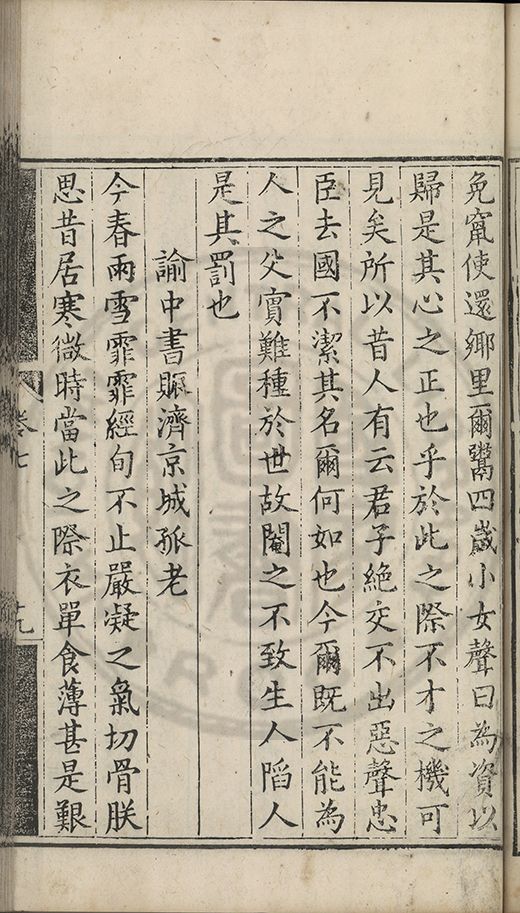 免竄使還鄉里爾鬻四歲小女聲曰為資以
歸是其心之正也乎於此之際不才之機可
見矣所以昔人有云君子絕交不出惡聲忠
臣去國不潔其名爾何如也今爾既不能為
人之父實難種於世故閹之不致生人陷人
是其罰也
諭中書賑濟京城孤老
今春雨雪霏霏經旬不止嚴凝之氣切骨朕
思昔居寒微時當此之際衣單食薄甚是艱
卷七
十九